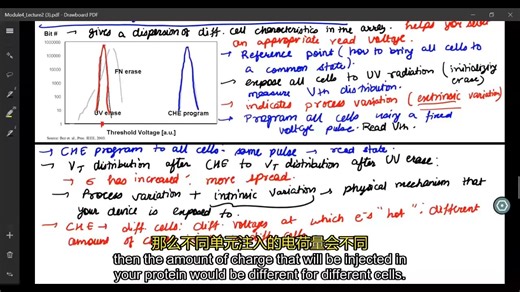 Module4_Lecture2 (3).pdf - Drawboard PDF
→ gives a dispersion of diff. cell characteristics in the array. helps you select
an appropriate read voltage.
Bit #
1000000
100000
10000
1000
100
10
1
FN erase
UV erase
CHE program
Threshold Voltage [a.u.]
Source: Bez et al., Proc. IEEE, 2003.
→ Reference point (how to bring all cells to
a common state).
→ expose all cells to UV radiation (initializing
erase)
measure Vth distribution.
→ indicates process variation (extrinsic variation)
→ Program all cells using a fixed
voltage pulse. Read Vth
→ CHE program to all cells: same pulse → read state.
→ VT distribution after CHE to VT distribution after UV erase:
→ σ has increased: more spread.
→ Process variation + intrinsic variation → physical mechanism that
your device is exposed to.
→ CHE → diff cells: diff. voltages at which e-s "hot": different
amount of
那么不同单元注入的电荷量会不同
then the amount of charge that will be injected in
your protein would be different for different cells.